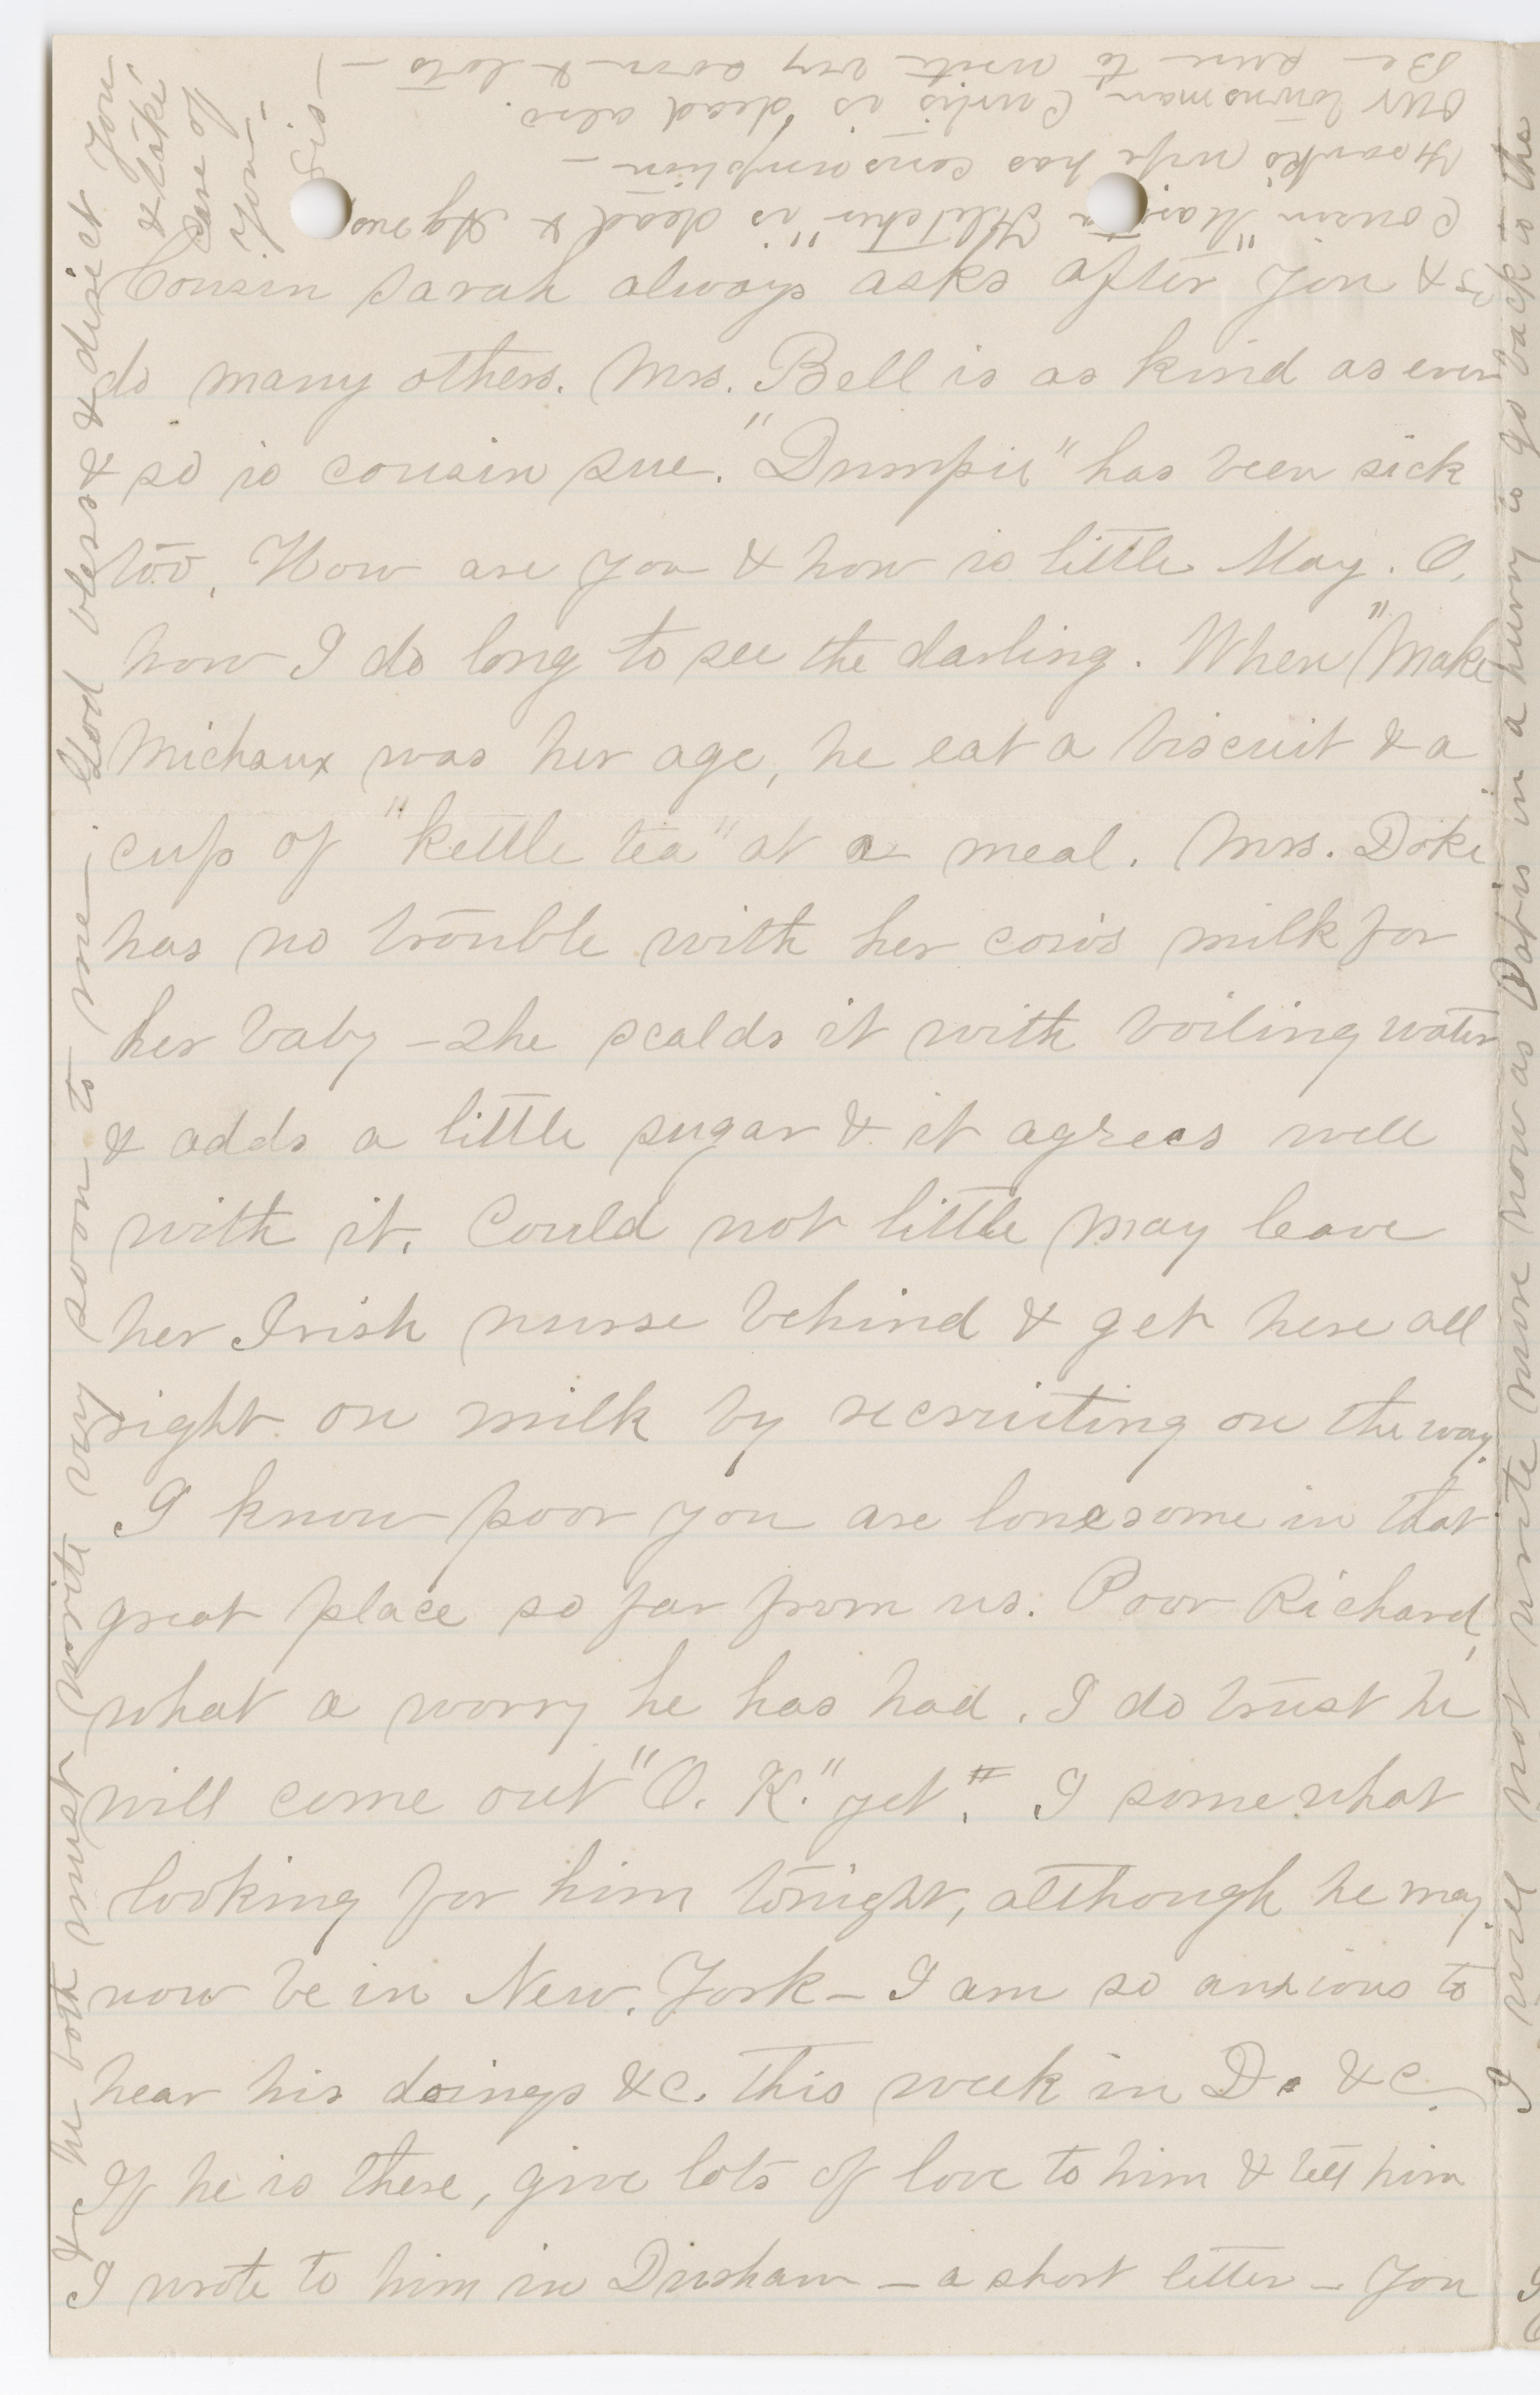 Cousin Sarah always asks after you & so
do many others. Mrs. Bell is as kind as ever
& so is cousin Sue. "Dumpie" has been sick
too. How are you & how is little May. O,
how I do long to see the darling. When "Make"
Michaux was her age, he eat a biscuit & a
cup of "kettle tea" at a meal. Mrs. Doke
has no trouble with her cow's milk for
her baby - she scalds it with boiling water
& adds a little sugar & it agrees well
with it. Could not little May leave
her Irish nurse behind & get here all
right on milk by recruiting on the way.
I know poor you are lonesome in that
great place so far from us. Poor Richard,
what a worry he has had. I do trust he
will come out "O. K." yet. I somewhat
looking for him tonight, although he may
now be in New. York - I am so anxious to
hear his doings &c. this week in D. &c.
If he is there, give lots of love to him & tell him
I wrote to him in Durham - a short letter - You
& he both must write very soon to me - God bless & direct you
& take
care of
you -
Cousin "Fletcher" is dead & Agnes
wife has consumption -
Our townsman, Curtis is dead also.
Be sure to write very soon & lots -
I will not write more now as Pat is in a hurry to go back to the